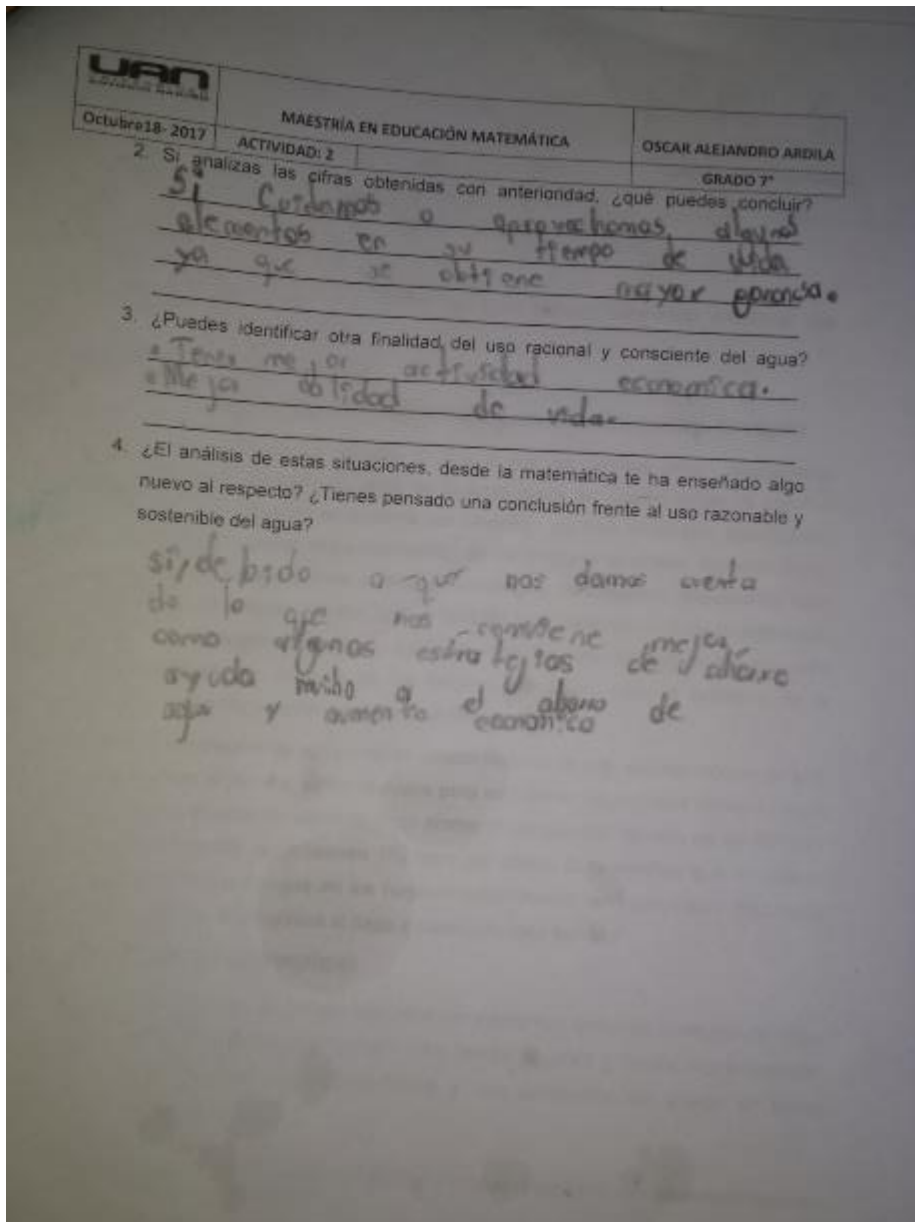 UAN
Octubre18- 2017
MAESTRÍA EN EDUCACIÓN MATEMÁTICA
OSCAR ALEJANDRO ARDILA
ACTIVIDAD: 2
GRADO 7°
2. Si analizas las cifras obtenidas con anterioridad, ¿qué puedes concluir?
Si Cuidamos o aprovechamos, algunos
elementos en su tiempo de vida
ya que se obtiene mayor ganancia.
3. ¿Puedes identificar otra finalidad del uso racional y consciente del agua?
• Tener mejor actividad economica.
• Mejor de vida.
4. ¿El análisis de estas situaciones, desde la matemática te ha enseñado algo
nuevo al respecto? ¿Tienes pensado una conclusión frente al uso razonable y
sostenible del agua?
si, debido a que nos damos cuenta
de lo que nos conviene mejor,
como algunas estrategias de
ayuda mucho a el de
agua y aumento economico